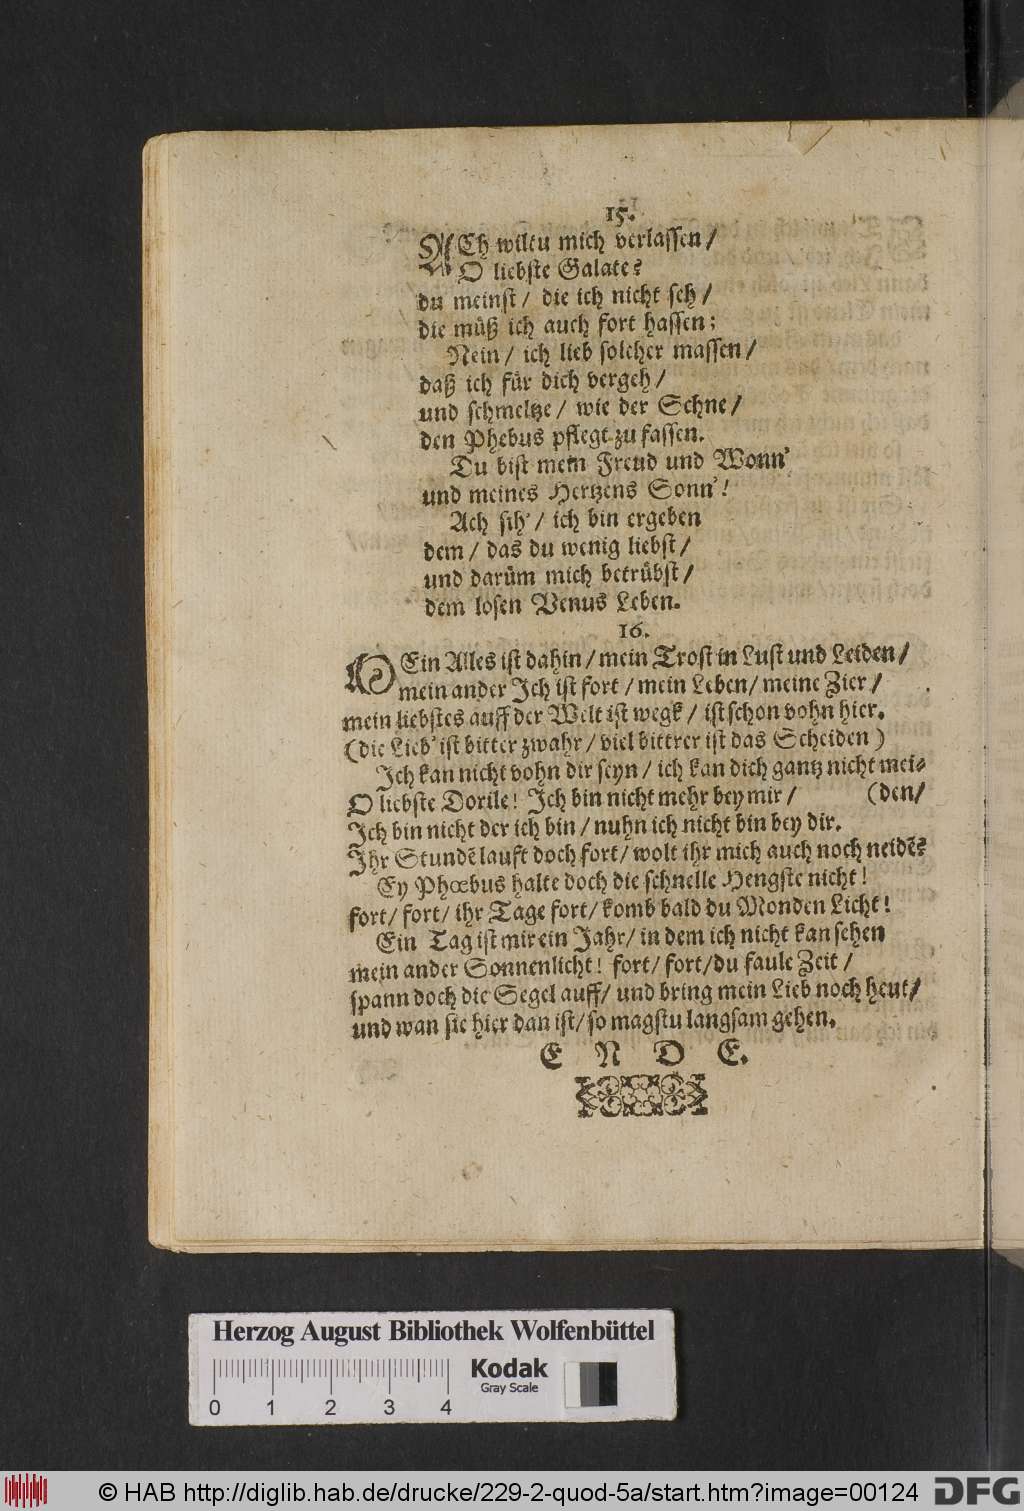 15.
ACh wiltu mich verlassen/
O liebste Galate?
du meinst/ die ich nicht seh/
die müß ich auch fort hassen;
Nein/ ich lieb solcher massen/
daß ich für dich vergeh/
und schmeltze/ wie der Schne/
den Phebus pflegt zu fassen.
Du bist mein Freud und Wonn'
und meines Hertzens Sonn'!
Ach sih'/ ich bin ergeben
dem/ das du wenig liebst/
und darüm mich betrübst/
dem losen Venus Leben.
16.
MEin Alles ist dahin/ mein Trost in Lust und Leiden/
mein ander Ich ist fort/ mein Leben/ meine Zier/
mein liebstes auff der Welt ist wegk/ ist schon vohn hier.
(die Lieb' ist bitter zwahr/ viel bittrer ist das Scheiden)
Ich kan nicht vohn dir seyn/ ich kan dich gantz nicht mei-
O liebste Dorile! Ich bin nicht mehr bey mir/ (den/
Ich bin nicht der ich bin/ nuhn ich nicht bin bey dir.
Ihr Stundẽ lauft doch fort/ wolt ihr mich auch noch neidẽ?
Ey Phœbus halte doch die schnelle Hengste nicht!
fort/ fort/ ihr Tage fort/ komb bald du Monden Licht!
Ein Tag ist mir ein Jahr/ in dem ich nicht kan sehen
mein ander Sonnenlicht! fort/ fort/ du faule Zeit/
spann doch die Segel auff/ und bring mein Lieb noch heut/
und wan sie hier dan ist/ so magstu langsam gehen.
E N D E.
Herzog August Bibliothek Wolfenbüttel
Kodak
Gray Scale
0 1 2 3 4
© HAB http://diglib.hab.de/drucke/229-2-quod-5a/start.htm?image=00124
DFG